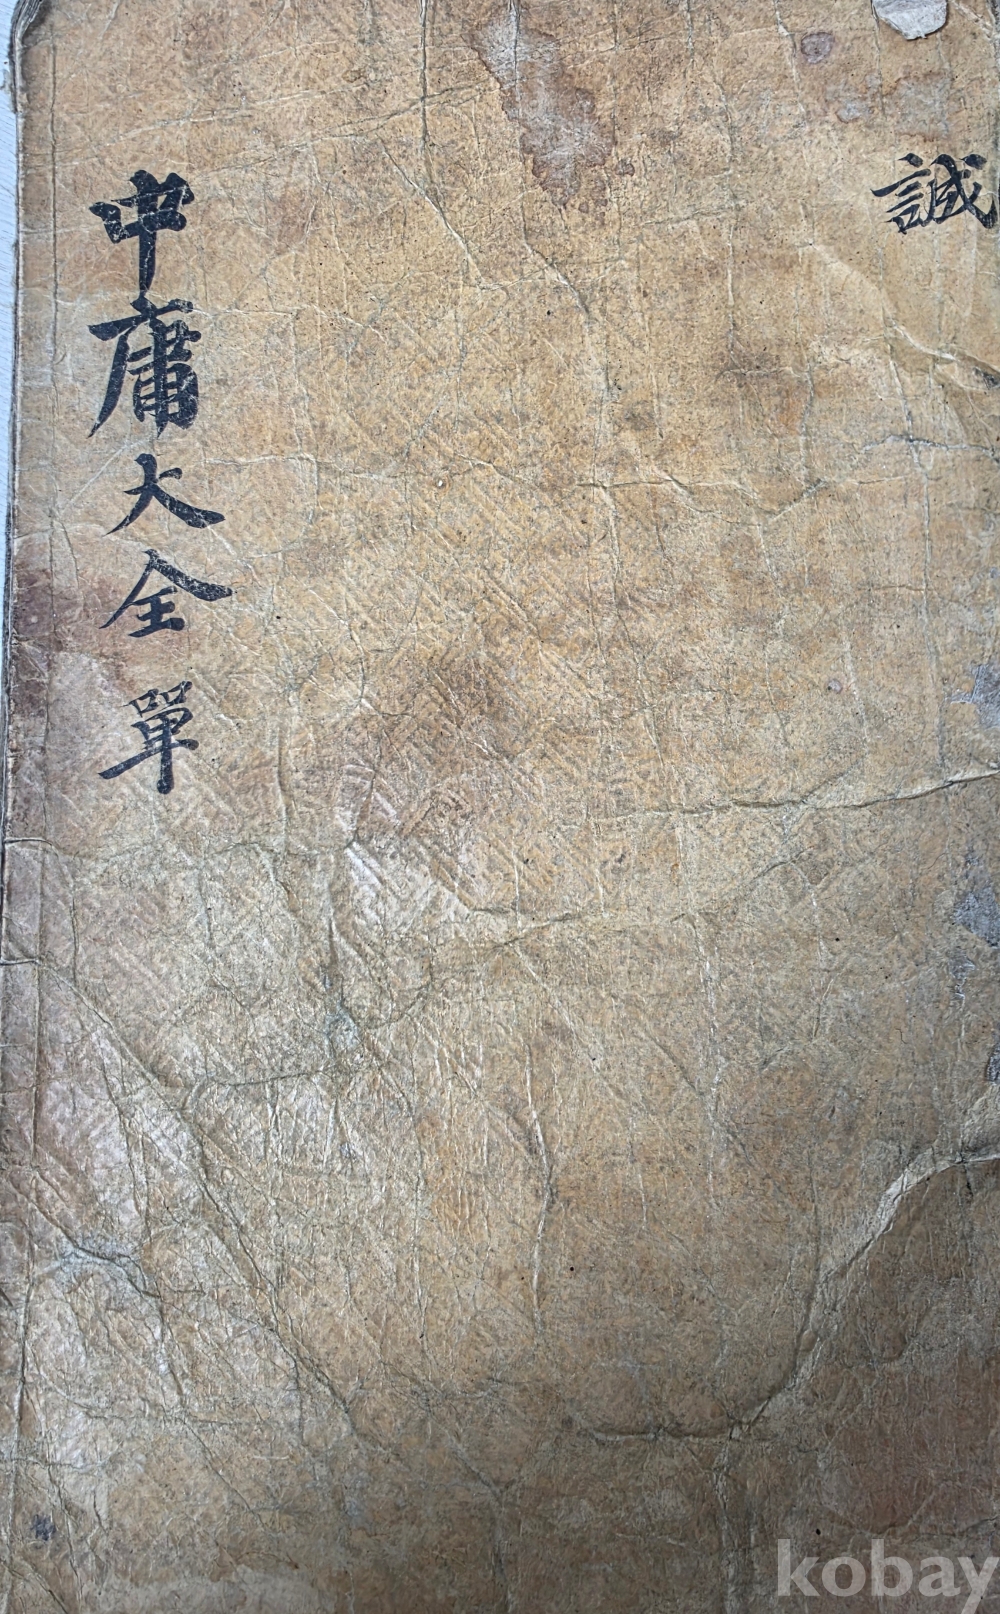 誠
中庸大全 單
kobay